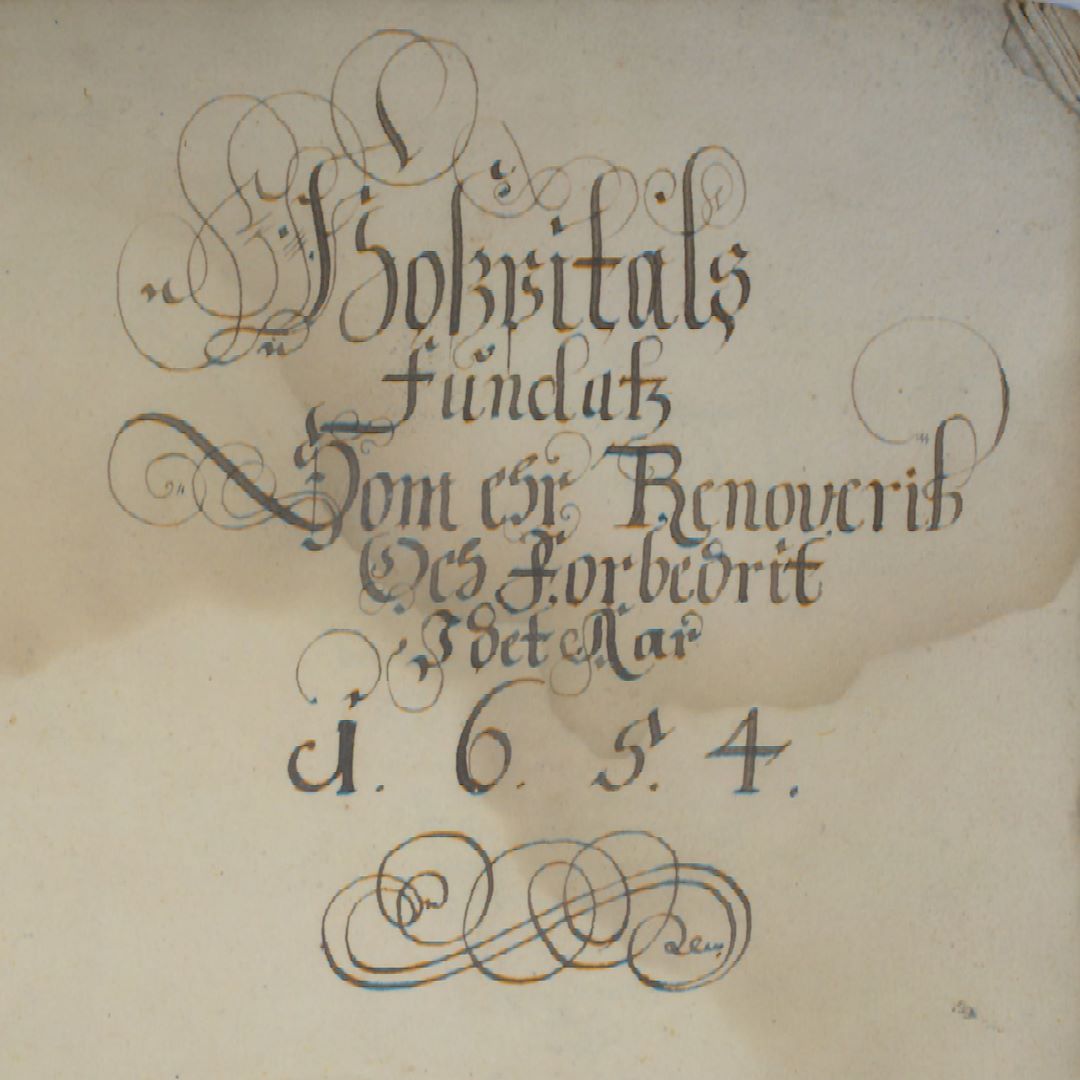 Hoßpitals
fundatz
Som ehr Renoverit
Och Forbedrit
I det Aar
1. 6. 5. 4.